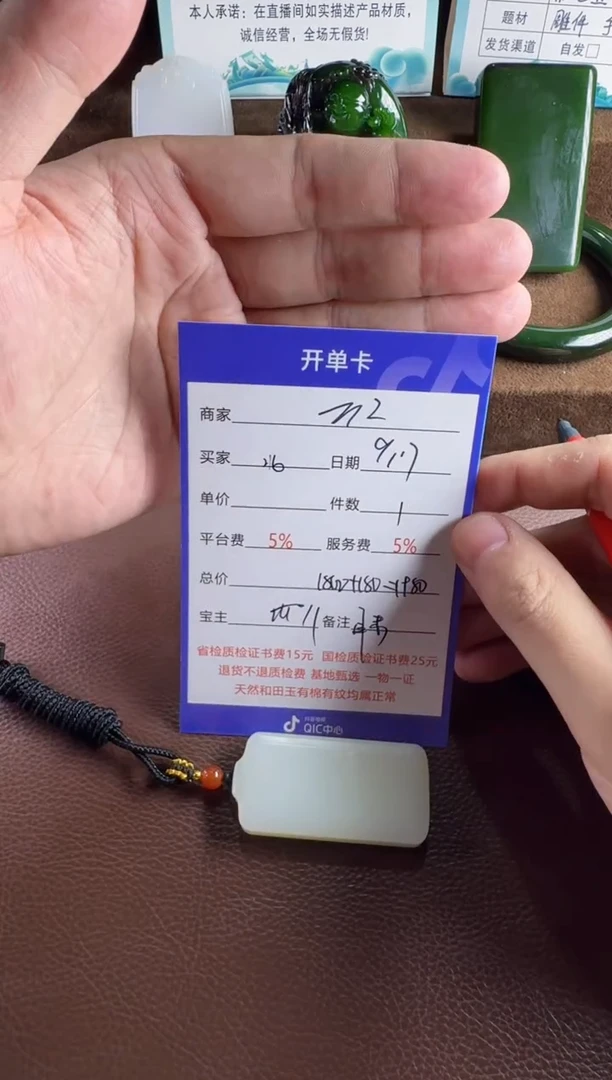 本人承诺：在直播间如实描述产品材质，
诚信经营，全场无假货!
题材 雕件
发货渠道 自发□
开单卡
商家
买家 日期 9.17
单价 件数 1
平台费 5% 服务费 5%
总价 1800+180=1980
宝主 备注
省检质检证书费15元 国检质检证书费25元
退货不退质检费 基地甄选 一物一证
天然和田玉有棉有纹均属正常
QIC中心